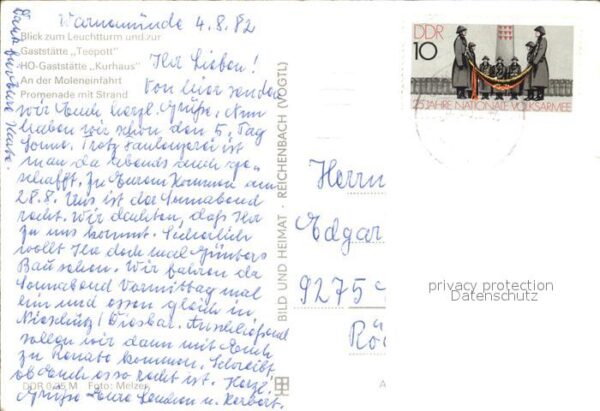 Warnemünde 4.8.82
Blick zum Leuchtturm und zur
Gaststätte „Teepott"
HO-Gaststätte „Kurhaus"
An der Moleneinfahrt
Promenade mit Strand
Ihr Lieben!
Von hier senden
wir Euch herzl. Grüße. Nun
haben wir schon den 5. Tag
Sonne. Trotz Faulenzerei ist
man da abends auch ge-
schafft. Zu Eurem Kommen am
28.8. Uns ist der Sonnabend
recht. Wir dachten, daß Ihr
zu uns kommt. Sicherlich
wollt Ihr doch mal Günters
Bau sehen. Wir fahren da
Sonnabend Vormittag mal
ein und essen gleich in
Nieschütz/Diesbar. Anschließend
sollen wir dann mit Euch
zu Renate kommen. Schreibt
ob Euch es so recht ist. Herzl.
Grüße Eure u. Herbert.
DDR 0,25 M Foto: Melzer
BILD UND HEIMAT · REICHENBACH (VOGTL)
DDR
10
25 JAHRE NATIONALE VOLKSARMEE
Herrn
Edgar
9275
privacy protection
Datenschutz